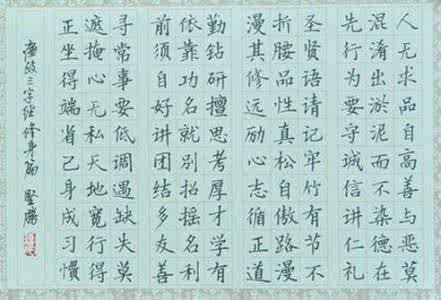 人无求品自高善与恶莫
混淆出淤泥而不染德在
先行为要守诚信讲仁礼
圣贤语请记牢竹有节不
折腰品性真松自傲路漫
漫其修远励心志循正道
勤钻研擅思考厚才学有
依靠功名就别招摇名利
前须自好讲团结多友善
寻常事要低调遇缺失莫
遮掩心无私天地宽行得
正坐得端省己身成习惯
廉政三字经修身篇